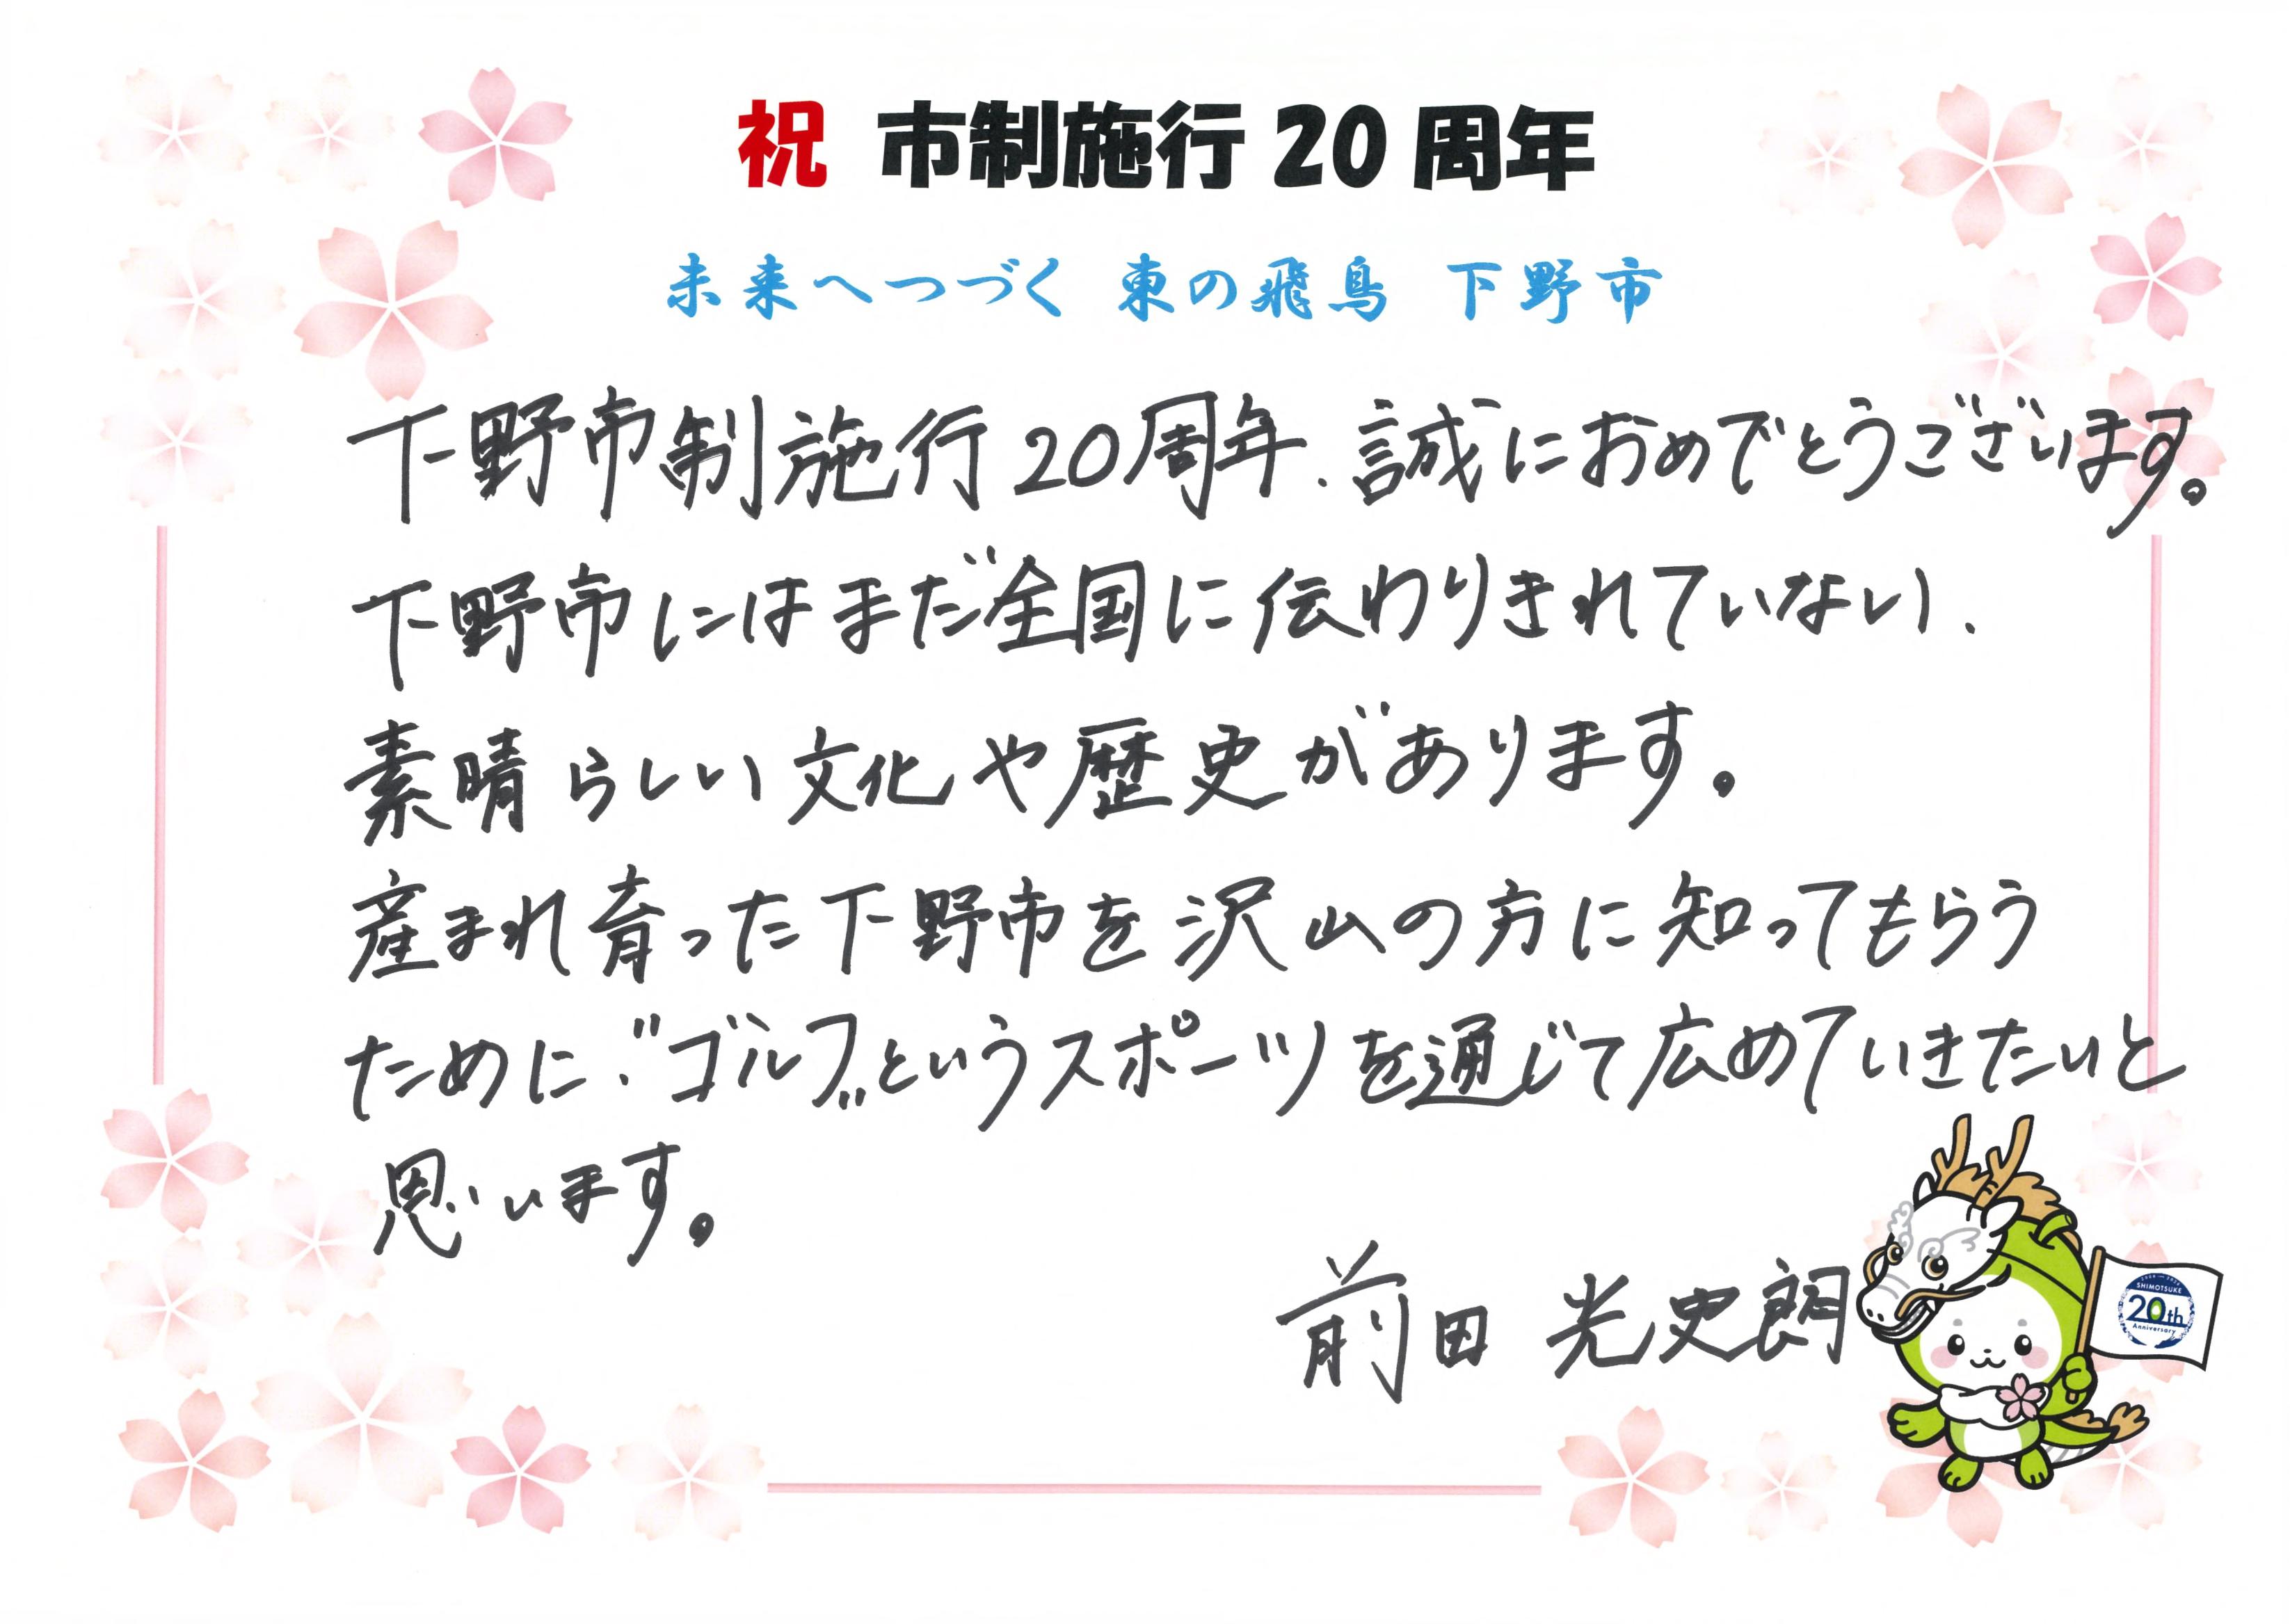 祝 市制施行20周年
未来へつづく 東の飛鳥 下野市
下野市制施行20周年、誠におめでとうございます。
下野市にはまだ全国に伝わりきれていない、
素晴らしい文化や歴史があります。
産まれ育った下野市を沢山の方に知ってもらう
ために、"ゴルフ"というスポーツを通じて広めていきたいと
思います。
前田 光史朗
SHIMOTSUKE
20th
Anniversary